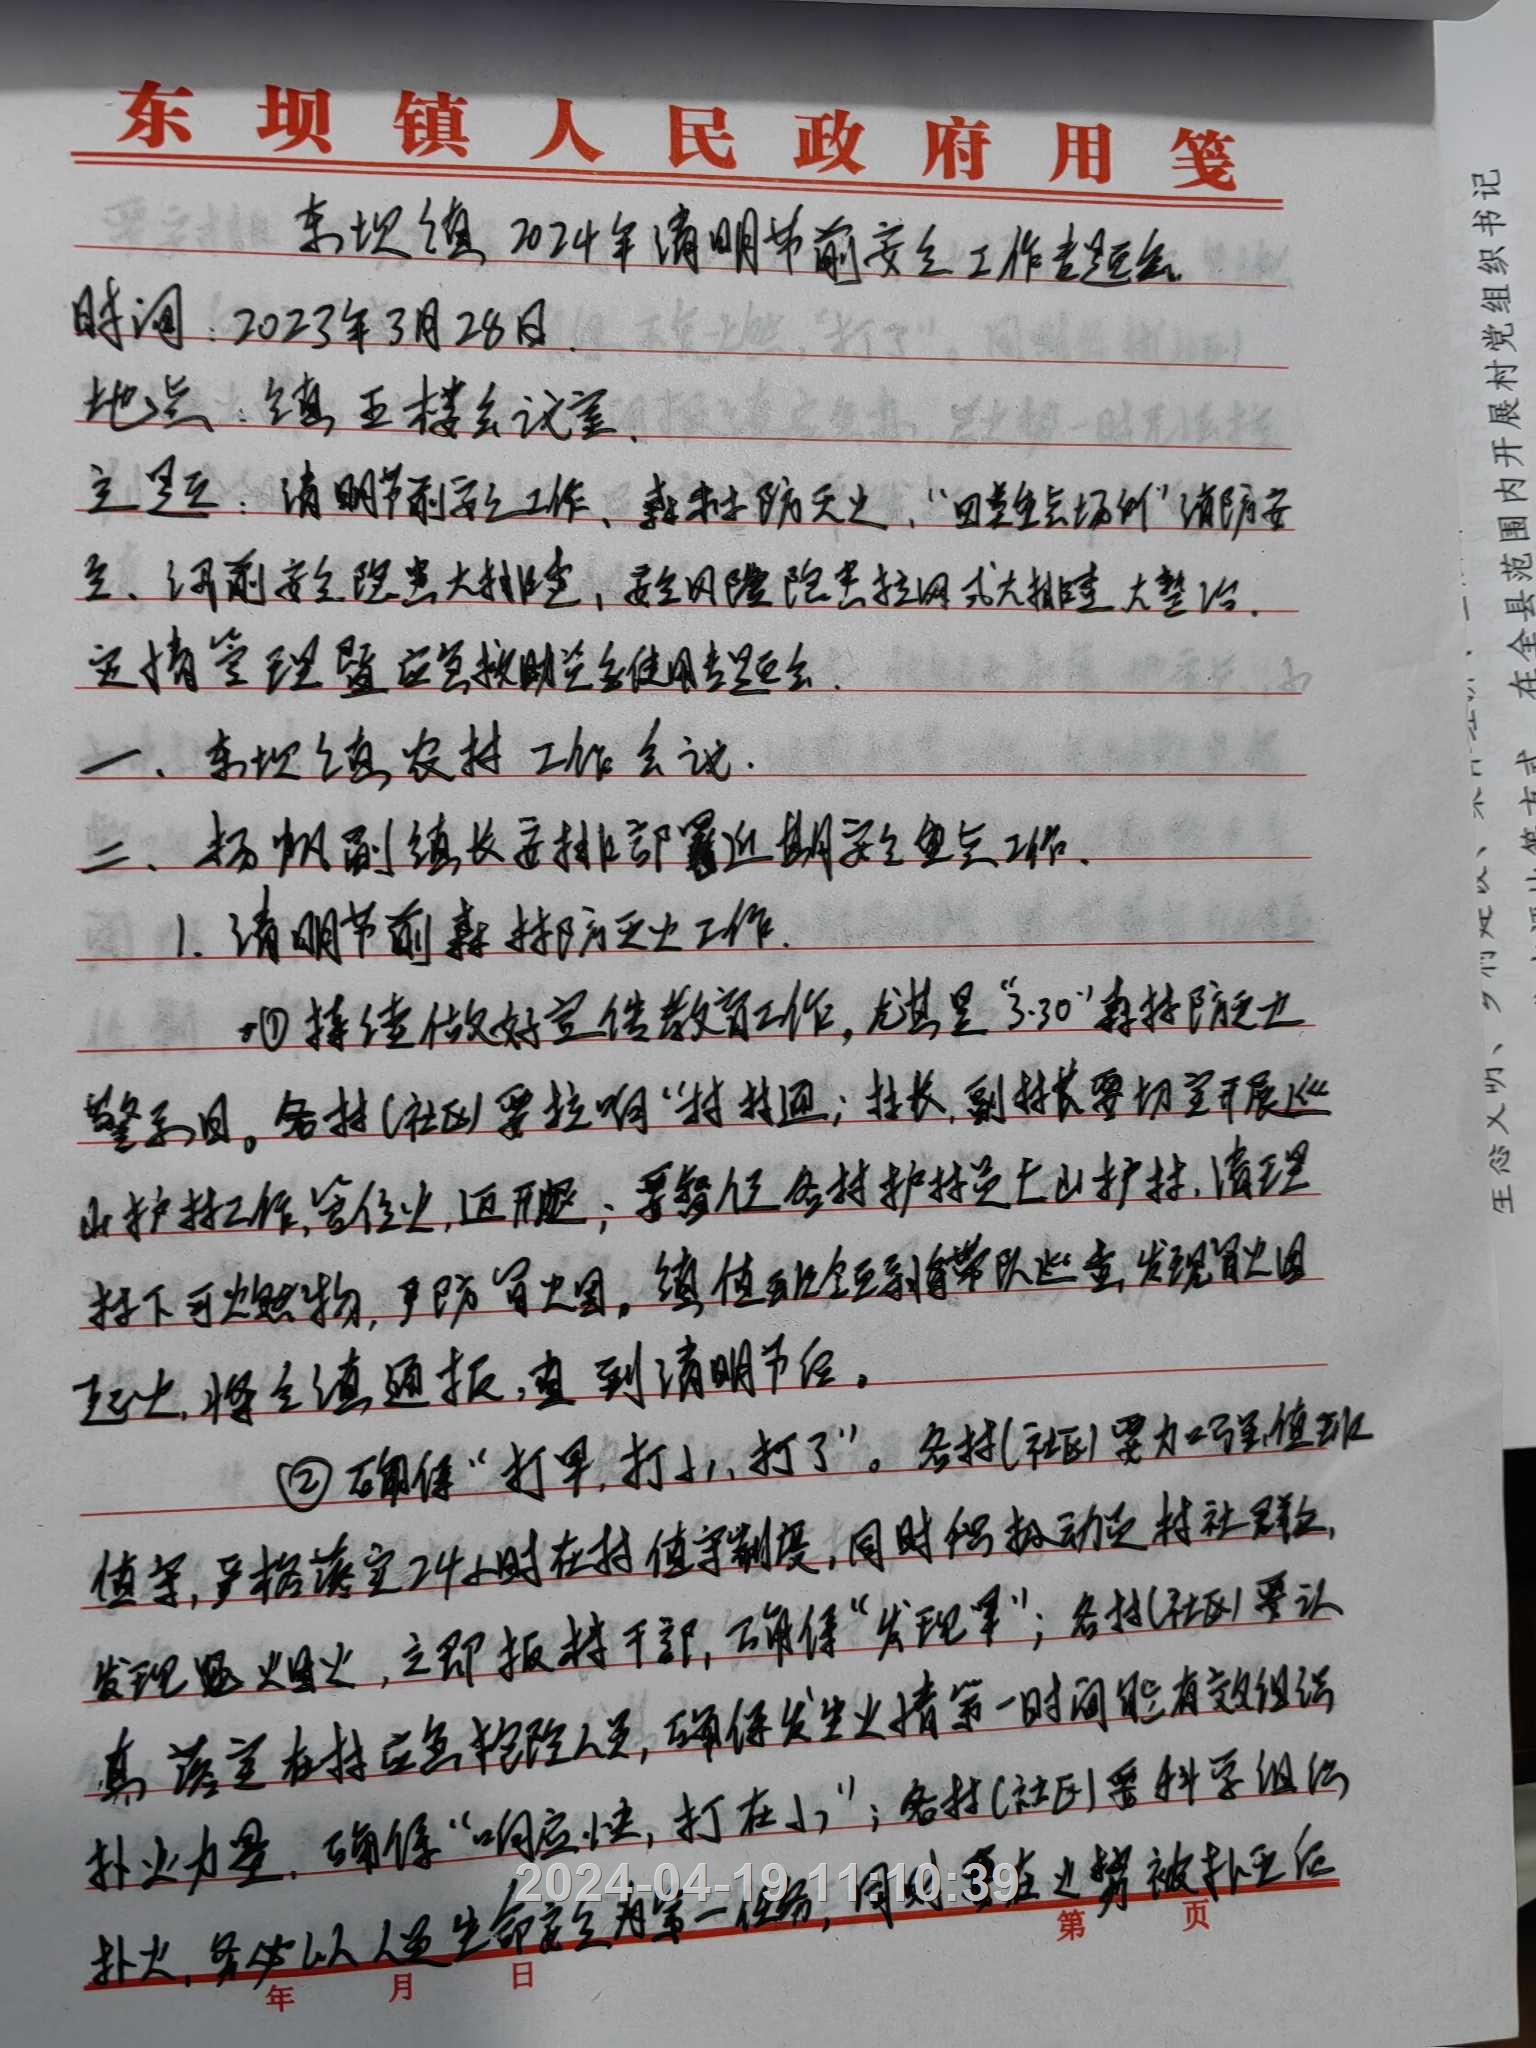 东坝镇人民政府用笺
东坝镇2024年清明节前安全工作专题会.
时间：2023年3月28日.
地点：镇五楼会议室.
主题：清明节前安全工作、森林防灭火、“四类重点场所”消防安
全、汛前安全隐患大排查，安全风险隐患拉网式大排查大整治.
定情管理暨应急救助资金使用专题会.
一、东坝镇农村工作会议.
二、杨帆副镇长安排部署近期安全重点工作.
1. 清明节前森林防灭火工作.
① 持续做好宣传教育工作，尤其是“3·30”森林防灭火
警示日。各村(社区)要拉响“村村通；林长,副林长要切实开展巡
山护林工作,管住火,迈开腿；要督促各村护林员上山护林,清理
林下可燃物,严防冒火因。镇值班全到带队巡查,发现冒火因
起火,将全镇通报,直到清明节后。
② 确保“打早,打小,打了”。各村(社区)要加强值班
值守,严格落实24小时在村值守制度,同时组织动员村社群众,
发现烟火,立即报村干部,确保“发现早”；各村(社区)要认
真落实在村应急抢险人员,确保发生火情第一时间能有效组织
扑火力量,确保“响应快,打在小”；各村(社区)要科学组织
扑火,务必以人员生命安全为第一任务,同时要在火势被扑灭后
年 月 日
第 页
2024-04-19 11:10:39
在全县范围内开展村党组织书记